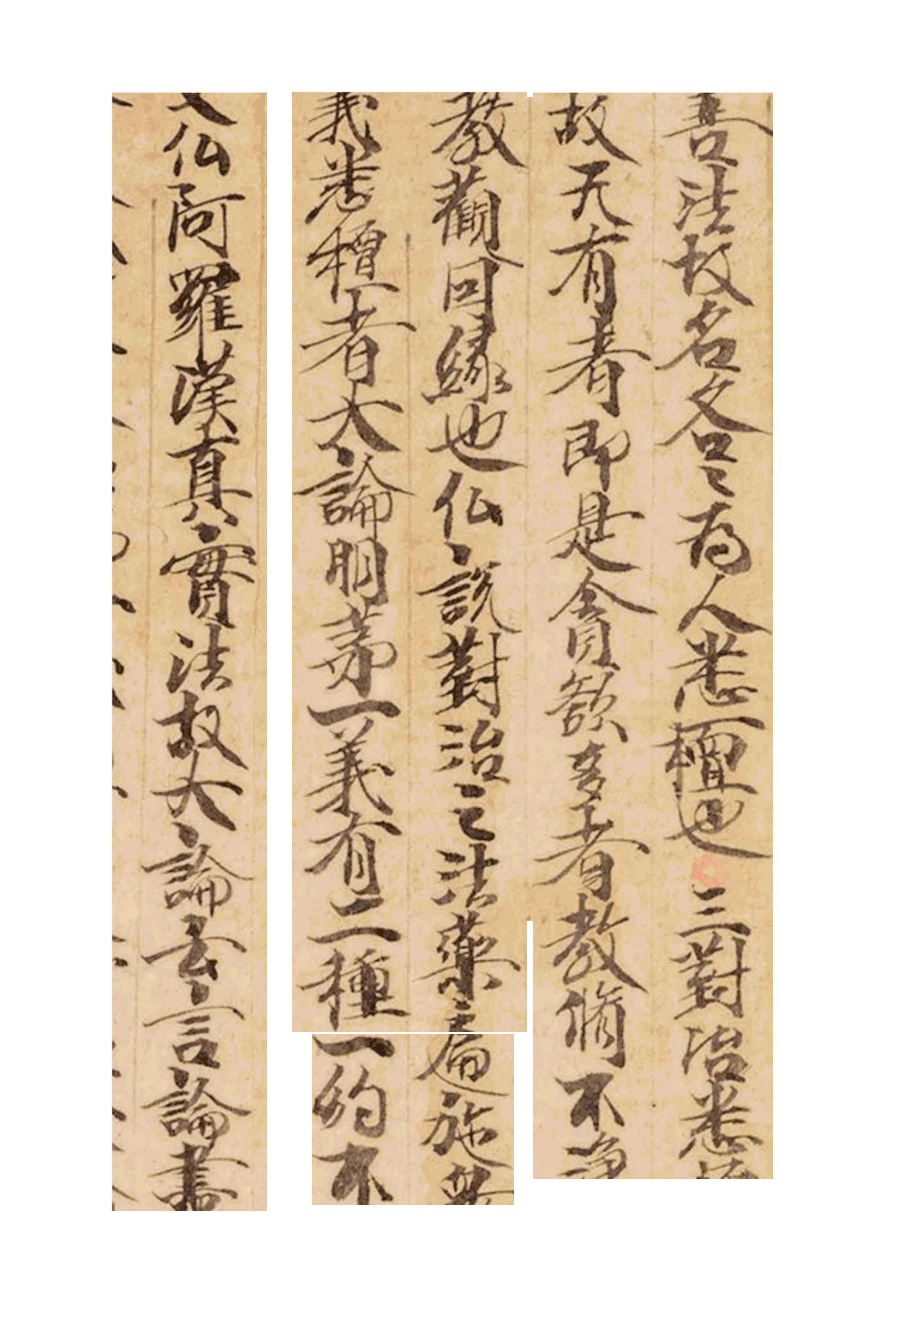 善法故名各々為人悉檀也三對治悉檀
故无有者即是貪欲多者教脩不淨
教觀因緣也仏說對治之法藥遍施衆
義悉檀者大論明苐一義有二種一約不
支仏阿羅漢真實法故大論云言論盡